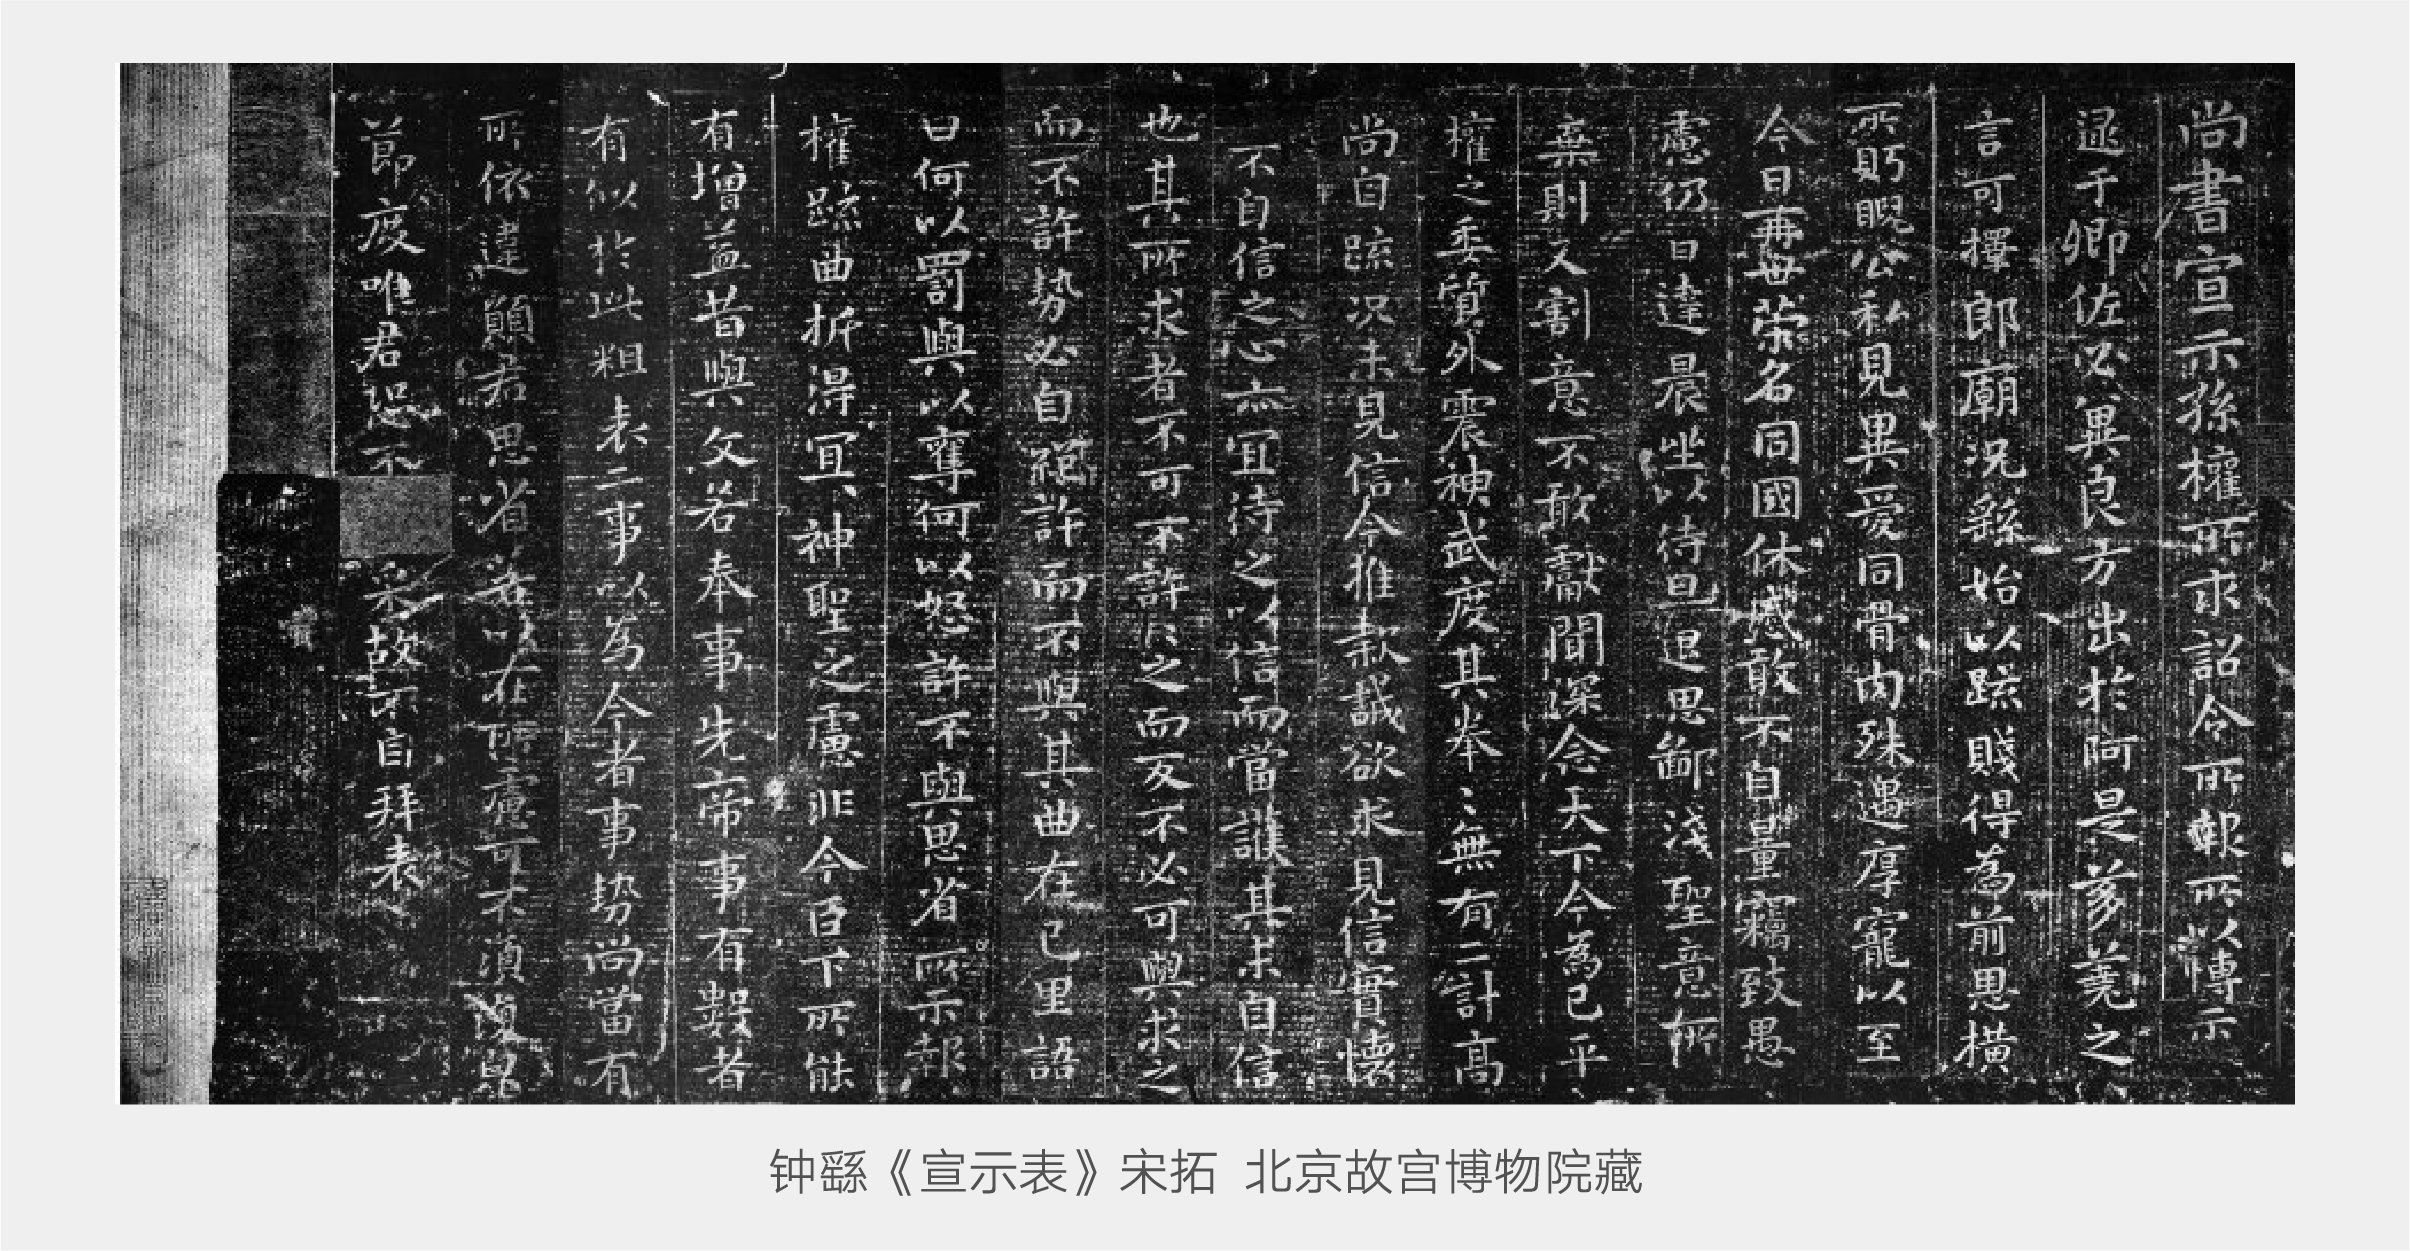 尚書宣示孫權所求詔令所報所以博示
逮于卿佐必冀良方出於阿是芻蕘之
言可擇郎廟況繇始以疏賤得為前恩橫
所䀪睨公私見異愛同骨肉殊遇厚寵以至
今日再世榮名同國休慼敢不自量竊致愚
慮仍日達晨坐以待旦退思鄙淺聖意所
棄則又割意不敢獻聞深念天下今為已平
權之委質外震神武度其拳〻無有二計高
尚自疏況未見信今推款誠欲求見信實懷
不自信之心亦宜待之以信而當護其未自信
也其所求者不可不許許之而反不必可與求之
而不許勢必自絕許而不與其曲在己里語
曰何以罰與以奪何以怒許不與思省所示報
權疏曲折得宜神聖之慮非今臣下所能
有增益昔與文若奉事先帝事有數者
有似於此粗表二事以為今者事勢尚當有
所依違願君思省若以在所慮可不須復皃
節度唯君恐不
采故不自拜表
钟繇《宣示表》宋拓 北京故宫博物院藏